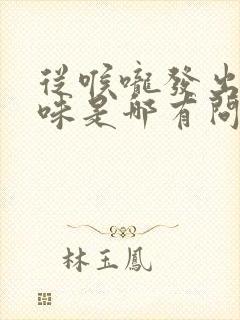 從喉嚨發出
味是哪有問
林玉鳳